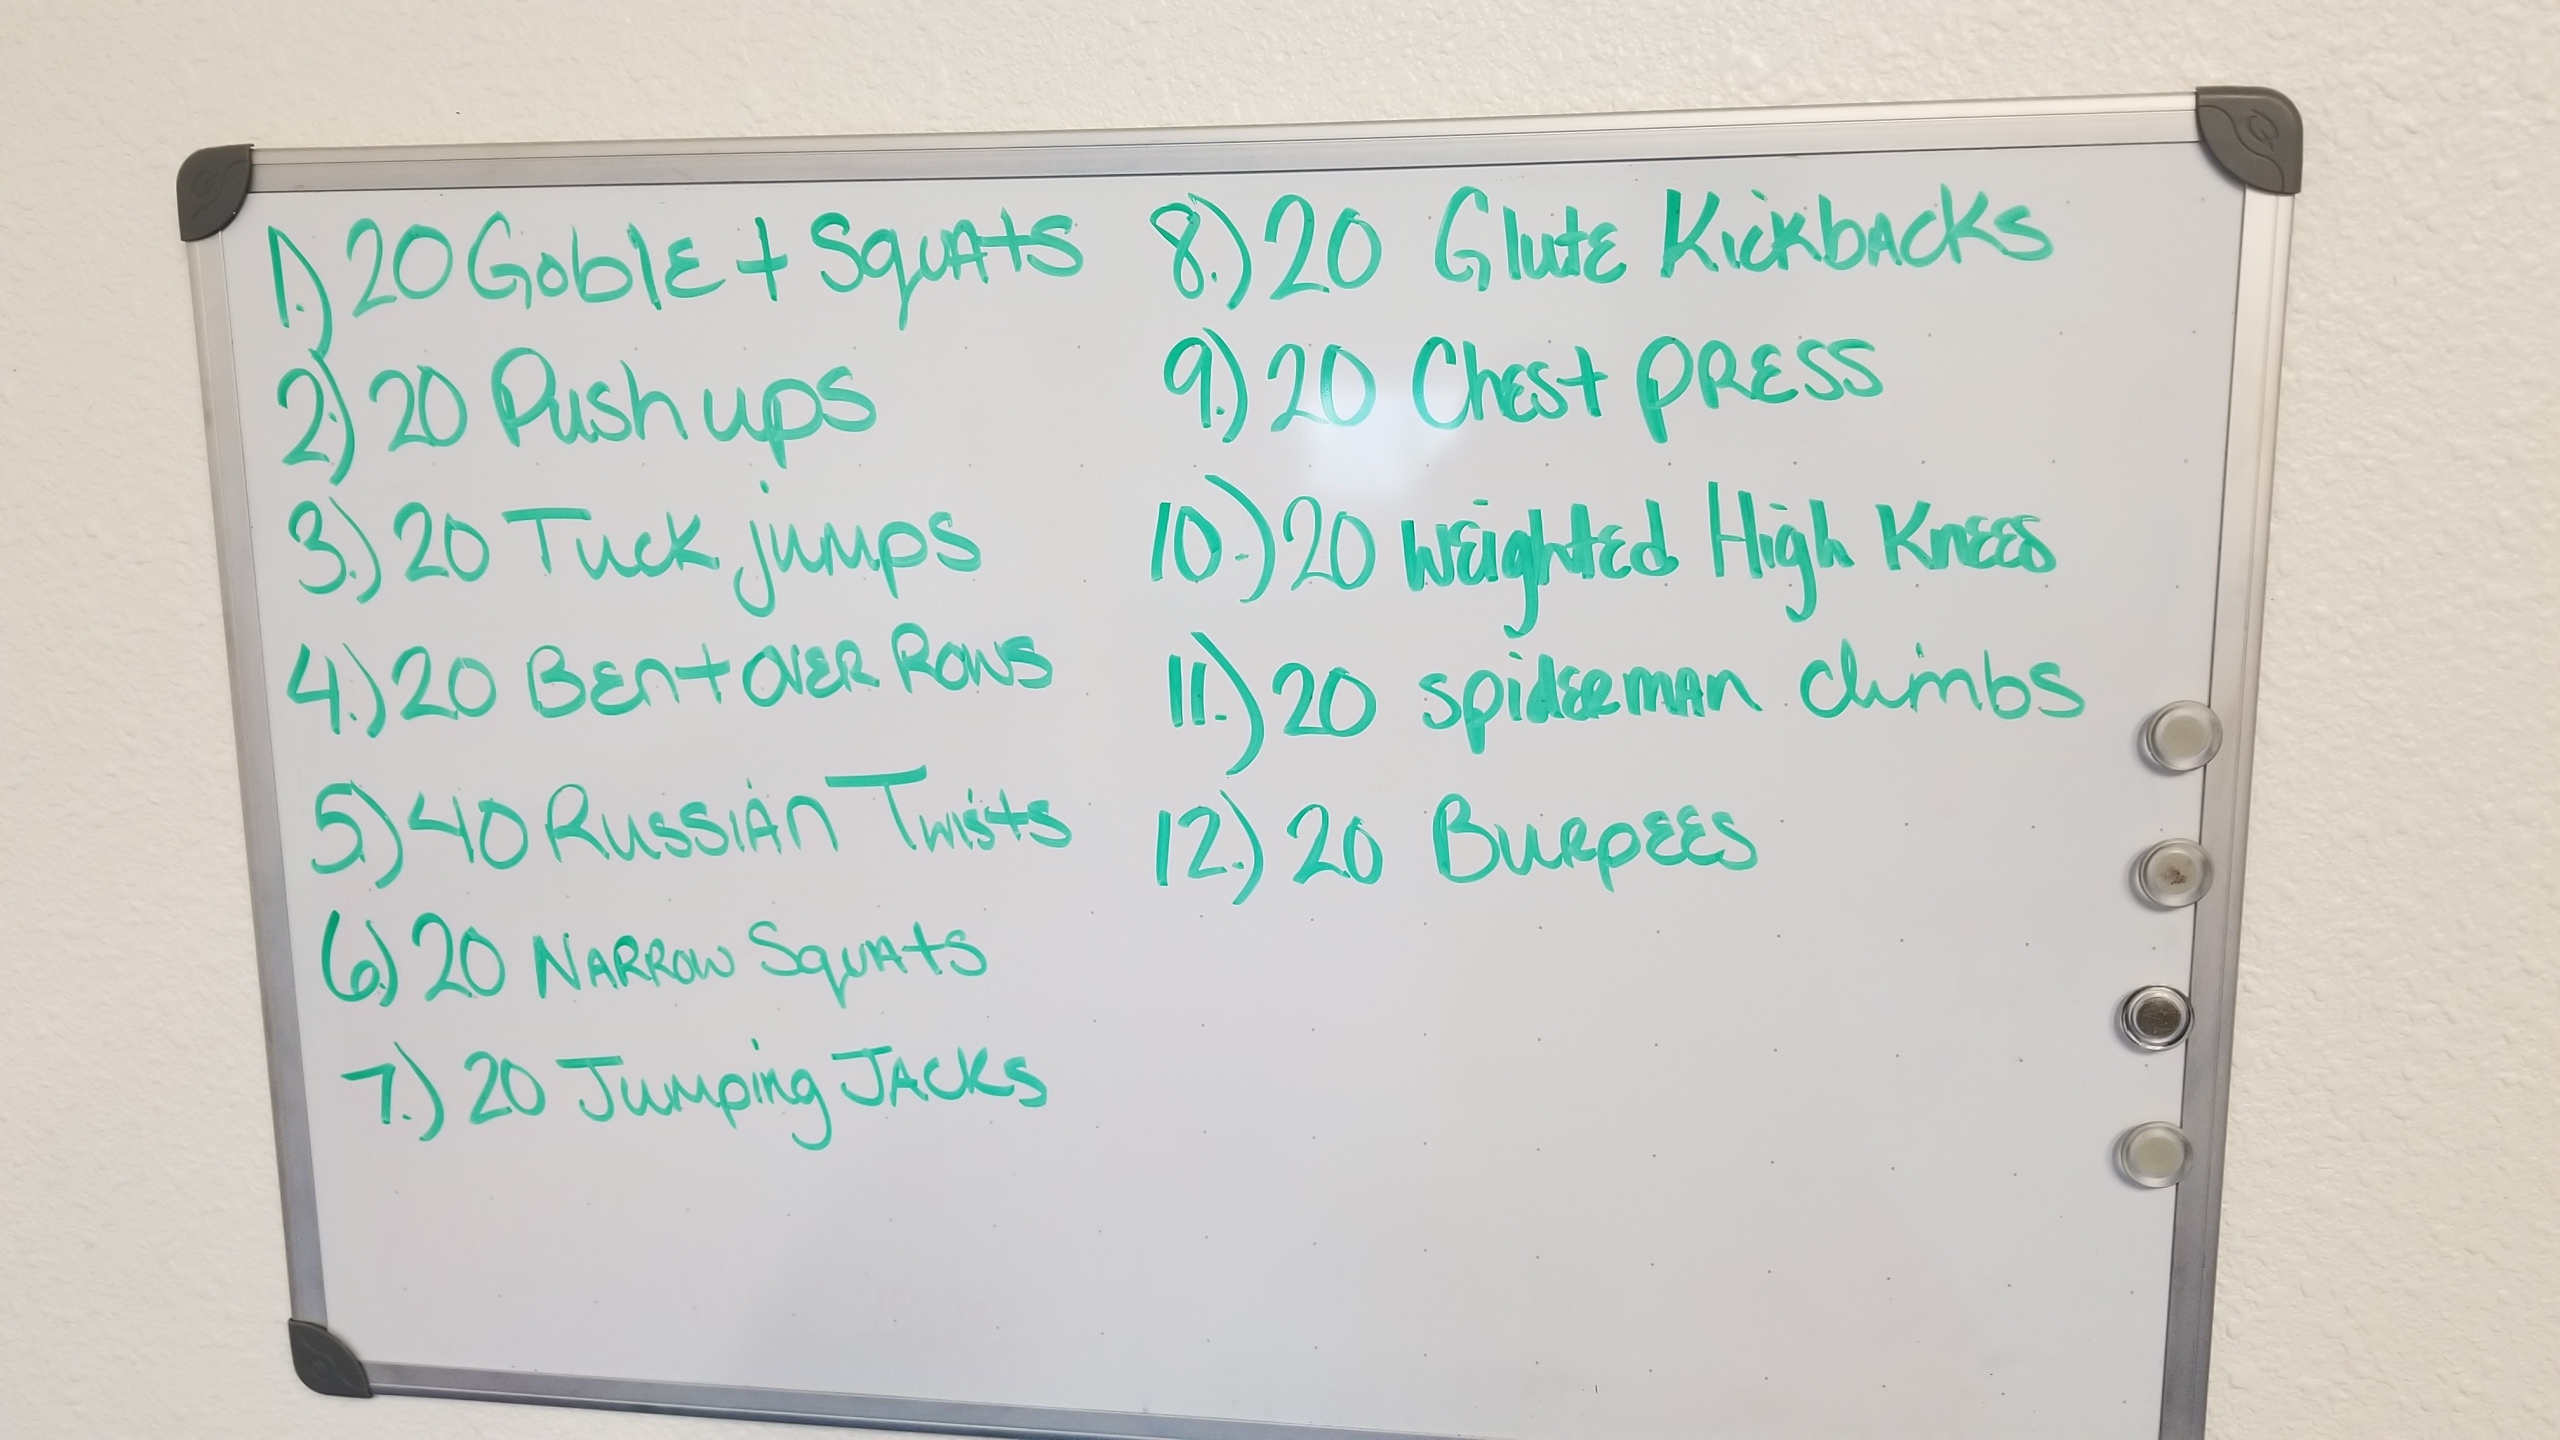 1.) 20 Goblet Squats
2.) 20 Push ups
3.) 20 Tuck jumps
4.) 20 Bent over Rows
5.) 40 Russian Twists
6.) 20 Narrow Squats
7.) 20 Jumping Jacks
8.) 20 Glute Kickbacks
9.) 20 Chest PRESS
10.) 20 Weighted High Knees
11.) 20 spiderman climbs
12.) 20 Burpees